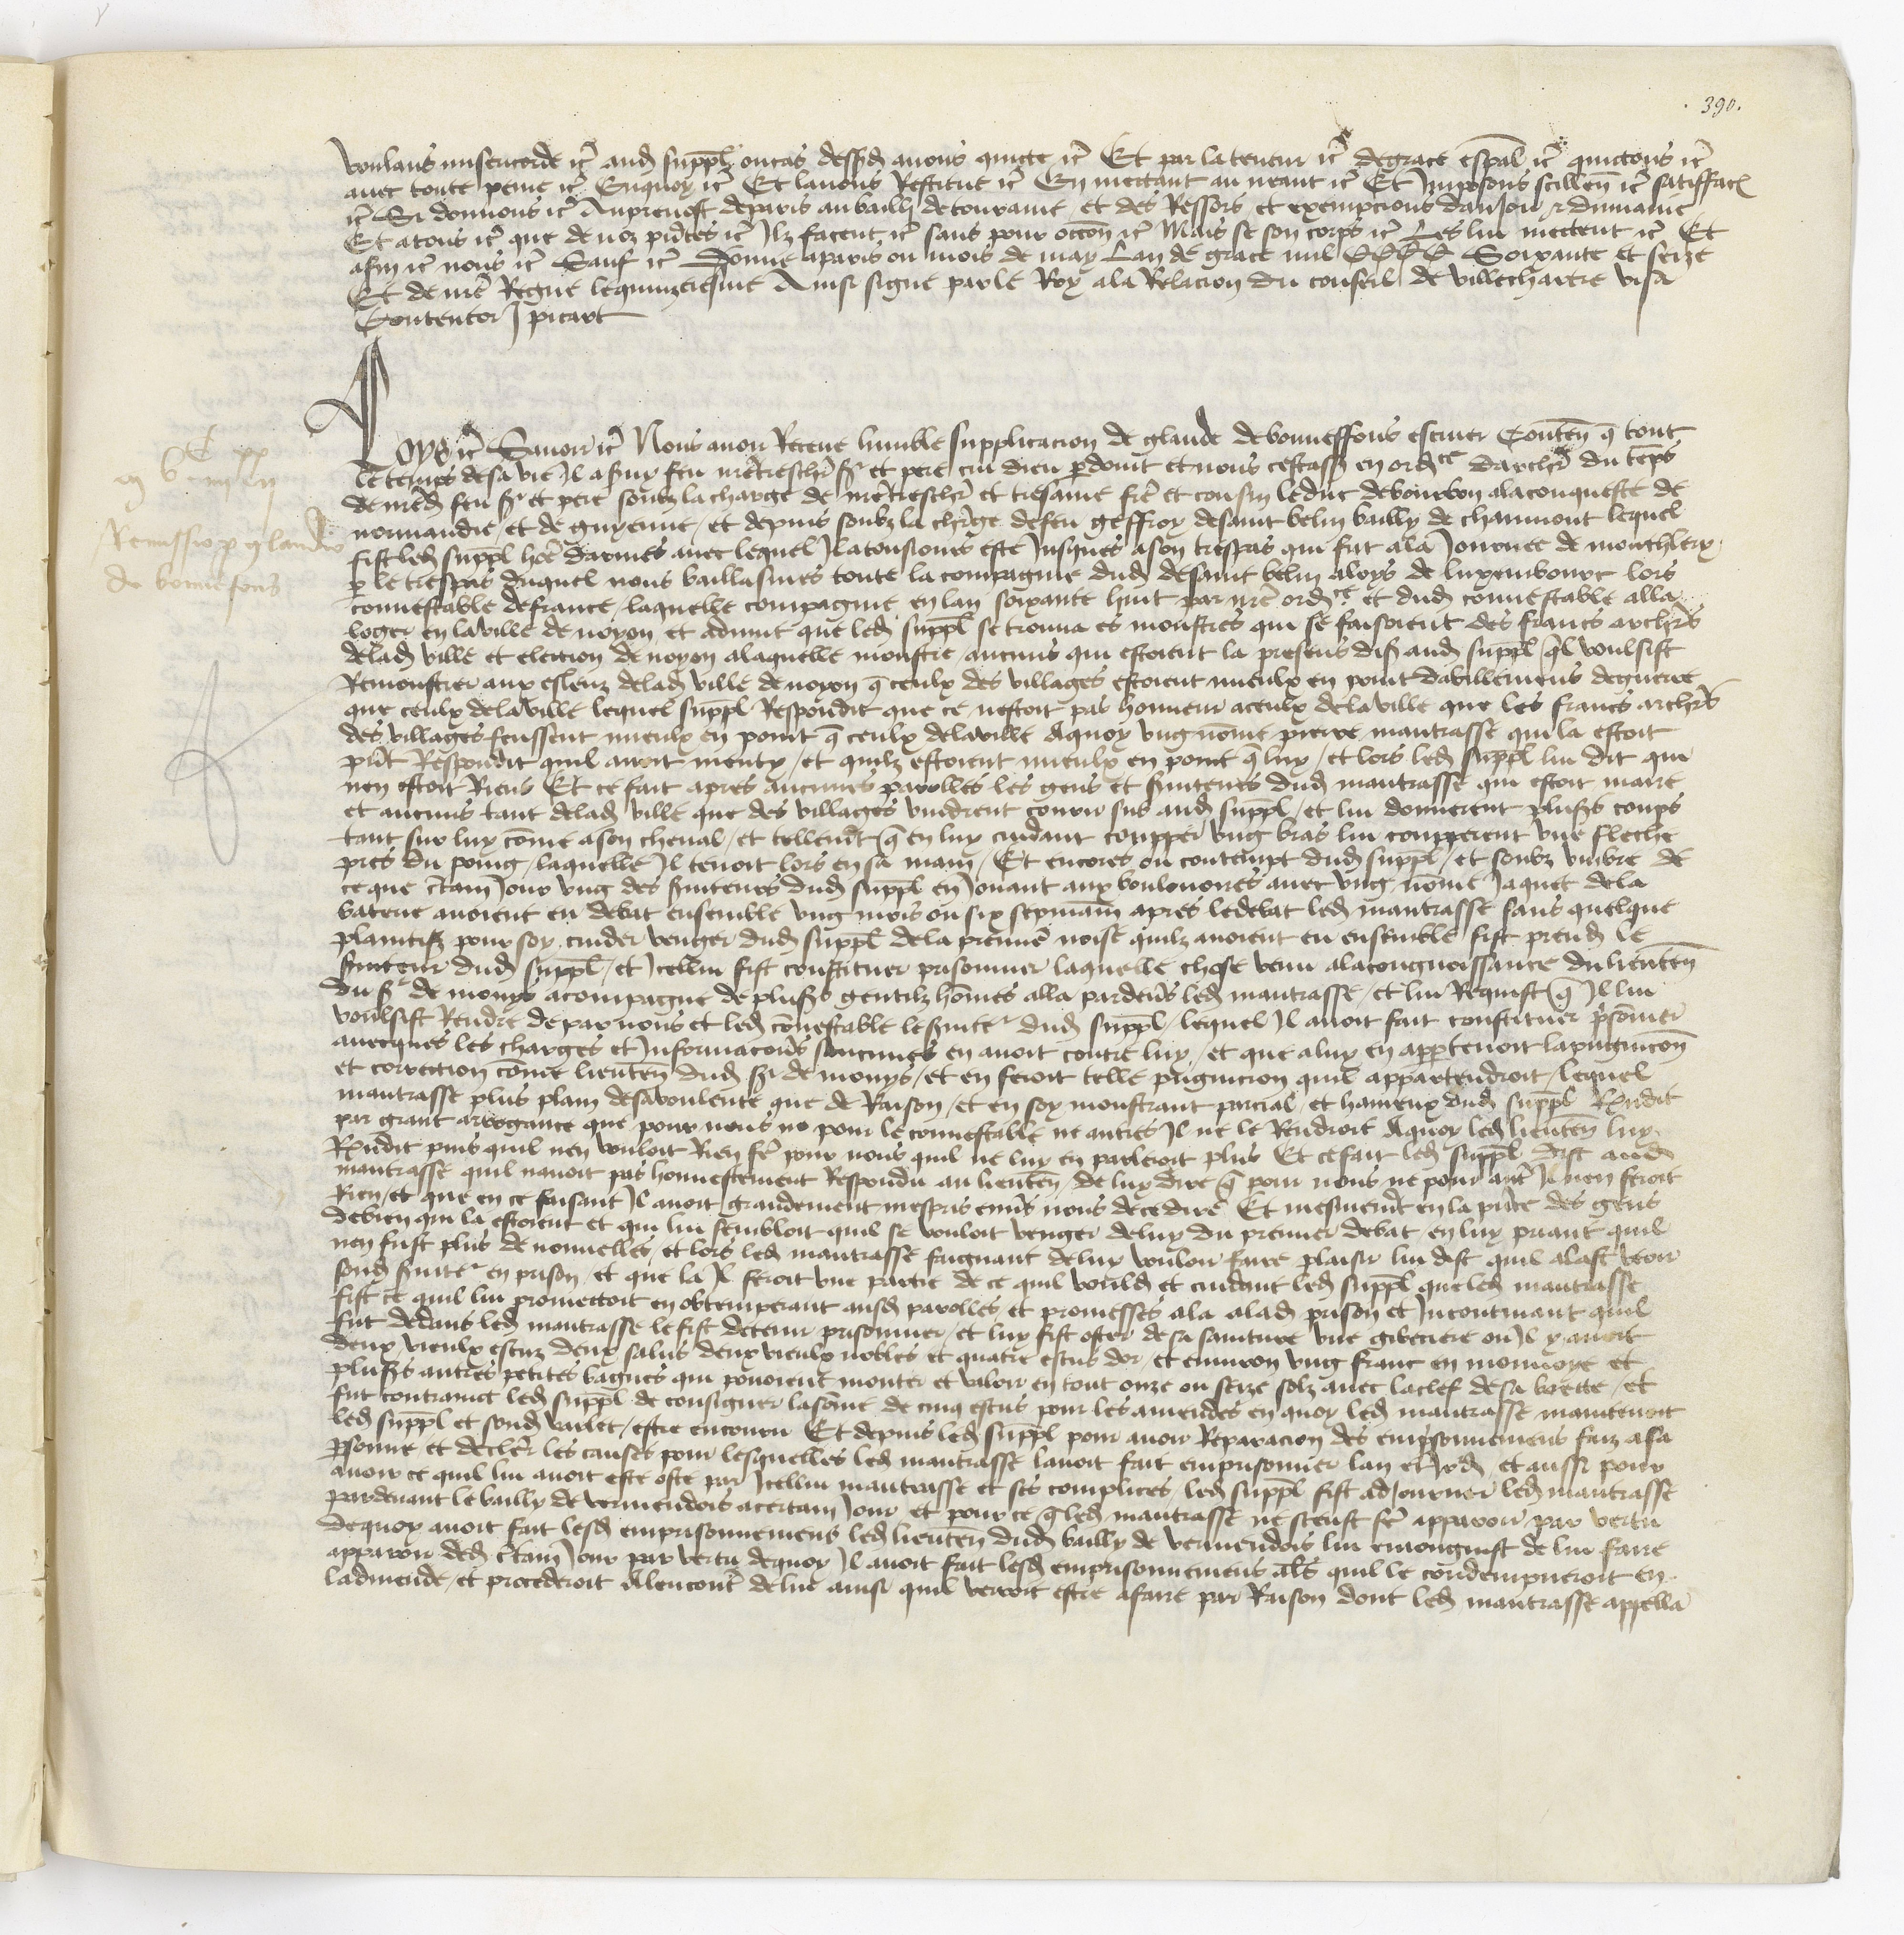 390.
voulans misericorde etc aud suppl ou cas dessusd avons quicte etc Et par la teneur etc de grace espal etc quictons etc
avec toute peine etc Enquoy etc Et lavons Restitue etc En mectant au neant etc Et Imposons scillen etc satiffacc
etc Si donnons etc Au prevost de paris au bailli de touraine et des Ressors et exempcions danjou & du maine
Et a tous etc que de noz pntes etc Ilz facent etc sans pour occon etc Mais se son corps etc Les lui mectent etc Et
afin etc nous etc Sauf etc Donne a paris ou mois de may Lan de grace mil CCCC Soixante et seize
Et de nre Regne le quinzeiesme Ainsi signe par le Roy a la Relacion du conseil de villechartre visa
Contentor J picart
Loys etc Savoir etc Nous avoir Receue humble supplicacion de glaude de bonneffons escuier Conten q tout
le temps de sa vie Il a suy feu nre treschr sr et pere cui dieu pdoint et nous cestass en ordce darchr du teps
de nred feu sr et pere soubz la charge de nre treschr et tresame fre et cousin le duc de bourbon a la conqueste de
normandie et de guyenne et depuis soubz la chrge de feu geffroy de saint belin bailly de chaumont lequel
fist led suppl hoe darmes avec lequel Il a tousiours este Jusques a son trespas qui fut a la Journee de montlhery
p le trespas duquel nous baillasmes toute la compagnie dud de saint belin a loys de luxembourc lors
connestable de france laquelle compagnie en lan soixante huit par nre ordce et dud connestable alla
loger en la ville de noyon et advint que led suppl se trouva es monstres qui se faisoient des francs archrs
de lad ville et election de noyon a laquelle monstre aucuns qui estoient la presens dis aud suppl ql voulsist
Remonstrer aux esleuz de lad ville de noyon q ceulx des villages estoient mieulx en point dabillemens de guerre
que ceulx de la ville lequel suppl Respondit que ce nestoit pas honneur a ceulx de la ville que les francs archrs
des villages feussent mieulx en point q ceulx de la ville Aquoy ung nome pierre mantrasse qui la estoit
pnt Respondit quil avoit menty et quilz estoient mieulx en point q luy et lors led suppl lui dit que
nen estoit Riens Et ce fait apres aucunes parolles les gens et smiteurs dud mantrasse qui estoit maire
et aucuns tant de lad ville que des villages vindrent courir sus aud suppl et lui donnerent plusrs coups
tant sur luy come a son cheval et tellemt q en luy cuidant coupper ung bras lui coupperent une fleche
pres du poing laquelle Il tenoit lors en sa main Et encores ou contempt dud suppl et soubz umbre de
ce que ctain Jour ung des smiteurs dud suppl en Jouant aux boulouores avec ung nome Jaquet de la
baterie avoient eu debat ensemble ung mois ou six sepmain apres le debat led mantrasse sans quelque
plaintif pour soy cuider venger dud suppl de la premie noise quilz avoient eu ensemble fist prend le
smiteur dud suppl et Icellui fist constituer prisonnier laquelle chose venu a la congnoissance du lieuten
du sr de mouys acompagne de plusrs gentilz homes alla par devs led mantrasse et lui Requist q Il lui
voulsist Rendre de par nous et led conestable le smiter dud suppl lequel Il avoit fait constituer prisonier
avecques les charges et Informacons saucunes en avoit contre luy et que a luy en appartenoit la pugnicon
et correction come lieuten dud sr de mouys et en feroit telle pugnicion quil appartendroit lequel
mantrasse plus plain de sa voulente que de Raison et en soy monstrant parcial et haineux dud suppl Rendit
par grant arrogance que pour nous ne pour le connestable ne autres Il ne le Rendroit Aquoy led lieuten luy
Rendit puis quil nen vouloit Rien fe pour nous quil ne luy en parleroit plus Et ce fait led suppl dist aud
mantrasse quil navoit pas honnestement Respondu au lieuten de luy dire q pour nous ne pour autr Il nen feroit
Rien et que en ce faisant Il avoit grandement mespris envrs nous de ce dire Et mesmemt en la pnce des gens
de bien qui la estoient et qui lui sembloit quil se vouloit venger de luy du premier debat en luy priant quil
nen fust plus de nouvelles et lors led mantrasse faignant de luy vouloir faire plaisir lui dist quil alast veoir
sond smiter en prison et que la Il feroit une partie de ce quil vould et cuidant led suppl que led mantrasse
fist ce quil lui promectoit en obtemperant ausd parolles et promesses ala a lad prison et Incontinant quil
fut dedans led mantrasse le fist detenir prisonnier et luy fist oster de sa sainture une gibeciere ou Il y avoit
deux vieulx escuz deux salus deux vieulx nobles et quatre escus dor et environ ung franc en monnoye et
plusrs autres petites bagues qui povoient monter et valoir en tout onze ou seize solz avec la clef de sa boette et
fut contrainct led suppl de consigner la some de cinq escus pour les amendes en quoy led mantrasse maintenoit
led suppl et sond varlet estre encouru Et depuis led suppl pour avoir Reparacion des emprisonnemens faiz a sa
psonne et decler les causes pour lesquelles led mantrasse lavoit fait emprisonnier lan et Jord et aussi pour
avoir ce quil lui avoit este oste par Icellui mantrasse et ses complices led suppl fist adJourner led mantrasse
par devant le bailly de vermendois a certain Jour et pour ce q led mantrasse ne sceust fe apparoir par vertu
dequoy avoit fait lesd emprisonnemens led lieuten dud bailly de vermendois lui enjoinguist de lui faire
apparoir ded ctain Jour par vertu dequoy Il avoit fait lesd emprisonnemens als quil le condempneroit en
ladmende et procederoit alencontr de lui ainsi quil verroit estre a faire par Raison dont led mantrasse appella
Remissio p glaudio
de bonnefons